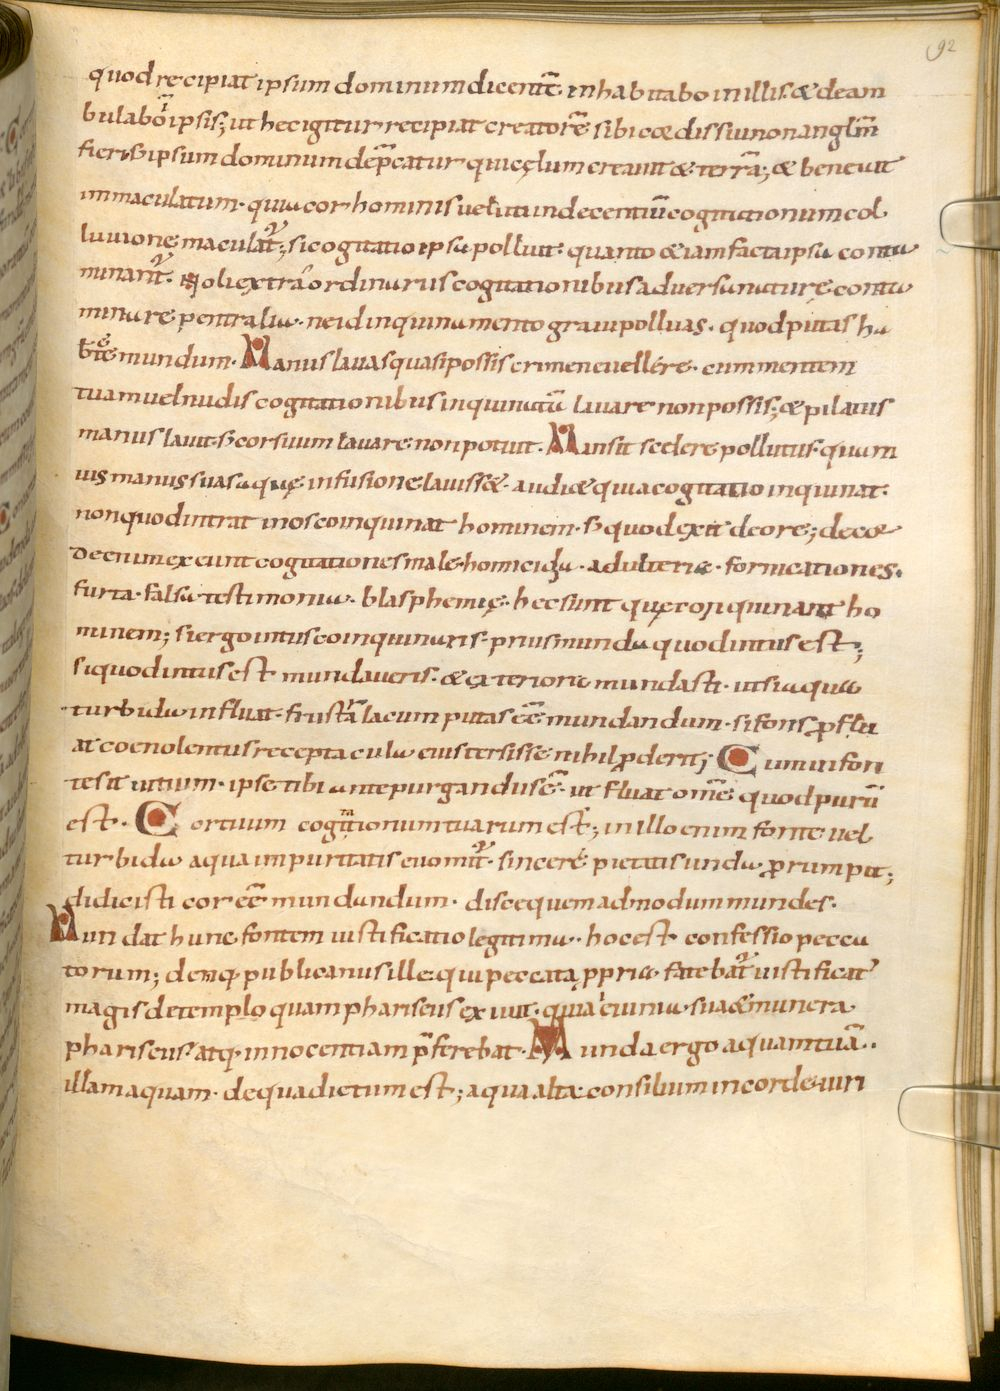 92
quod recipiat ipsum dominum dicentē. inhabitabo inillis. & deam
bulabo in ipsis; ut hec igitur recipiat creatorē sibi coedissiu non anglm̄
fieri s; ipsum dominum dep̄catur qui cęlum creauit & terrā; & bene uit
immaculatum. quia cor hominis uelut indecentiū cogitationum col
luuione maculat᷑; si cogitatio ipsa polluit. quanto & iam facta ipsa conta
minant᷑. Noli extra ordinariis cogitationibus aduersu naturę conta
minare penitralia. ne id inquinamento graui polluas. quod putas ha
bere mundum. Manus lauas quasi possis crimen euellere. cum mentem
tuam uel nudis cogitationibus inquinatā lauare non possis; & pilatus
manus lauit. s; cor suum lauare non potuit. Mansit scelere pollutus. quam
uis manus suas aquę infusione lauiss&. audi & quia cogitatio inquinat.
non quod intrat in os coinquinat hominem. s; quod exit de ore; de cor
de enim exeunt cogitationes male. homicidia. adulteria. fornicationes.
furta. falsa testimonia. blasphemię. hec sunt quę coinquinant ho
minem; si ergo intus coinquinaris. prius munda quod intus est;
si quod intus est mundaueris. & exteriora mundasti. ut si aqua
turbida influat. frustrā lacum putas eē mundandum. si fons ꝓflu
at coenolentus receptacula eius tersisse nihil ꝓderit; Cum in fon
te sit uitium. ipse tibi ante purgandus ē. ut fluat omē quod purū
est. Cor tuum cogitationum tuarum est; in illo enim fonte uel
turbida aqua impuritatis euomit᷑. sincerę pietatis unda ꝓrumpit;
didicisti cor eē mundandum. disce quem ad modum mundes.
Mundat hunc fontem iustificatio legitima. hoc est confessio pecca
torum; deniq; publicanus ille. qui peccata ꝓpria fatebat᷑ iustificat᷑
magis de templo quam phariseus exiuit. quia ieiunia sua & munera
phariseus atq; innocentiam p̄ferebat. Munda ergo aquam tuā..
illam aquam. de qua dictum est; aqua alta consilium in corde uiri